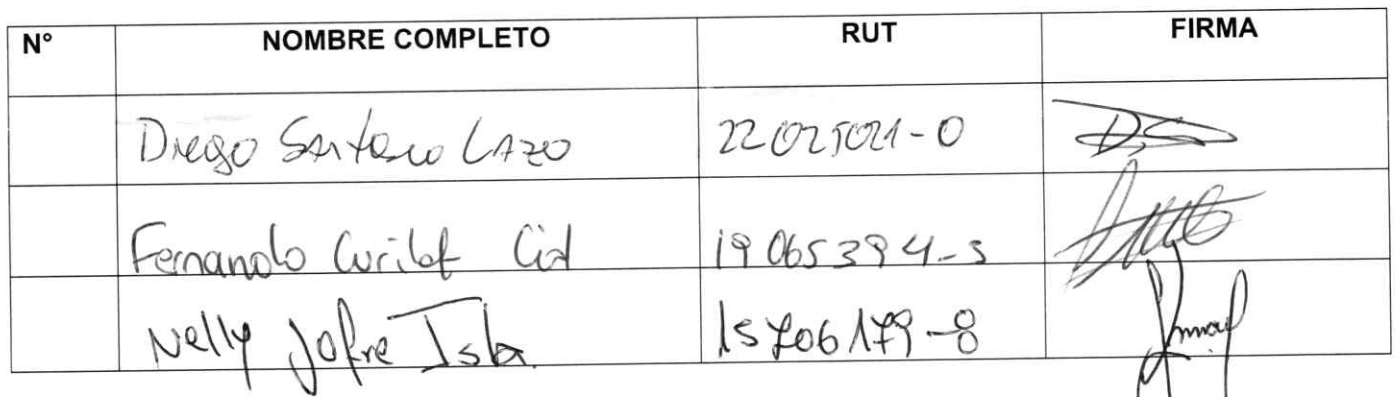 N° NOMBRE COMPLETO RUT FIRMA
Diego Santana Lazo 22025021-0
Fernando Curilef Cid 19065394-3
Nelly Jofre Isla 15706179-8